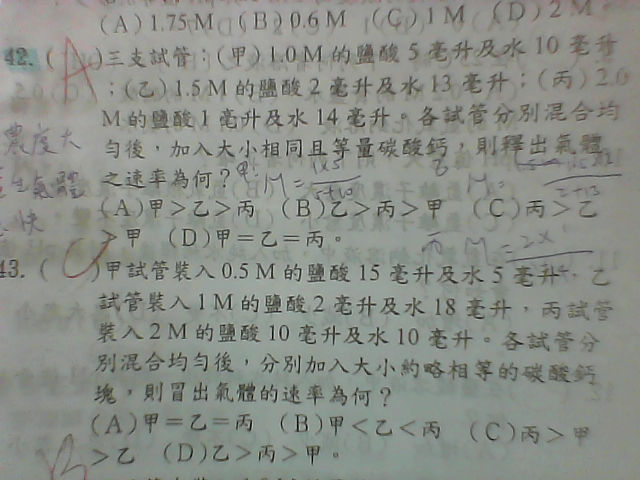 (A) 1.75 M (B) 0.6 M (C) 1 M (D) 2 M。
42. ( A )三支試管：(甲) 1.0 M 的鹽酸 5 毫升及水 10 毫升
；(乙) 1.5 M 的鹽酸 2 毫升及水 13 毫升；(丙) 2.0
M 的鹽酸 1 毫升及水 14 毫升。各試管分別混合均
勻後，加入大小相同且等量碳酸鈣，則釋出氣體
之速率為何？
(A)甲＞乙＞丙 (B)乙＞丙＞甲 (C)丙＞乙
＞甲 (D)甲＝乙＝丙。
43. ( C )甲試管裝入 0.5 M 的鹽酸 15 毫升及水 5 毫升，乙
試管裝入 1 M 的鹽酸 2 毫升及水 18 毫升，丙試管
裝入 2 M 的鹽酸 10 毫升及水 10 毫升。各試管分
別混合均勻後，分別加入大小約略相等的碳酸鈣
塊，則冒出氣體的速率為何？
(A)甲＝乙＝丙 (B)甲＜乙＜丙 (C)丙＞甲
＞乙 (D)乙＞丙＞甲。
濃度大
氣體
快
甲 M = 1×5 / 5+10
乙 M = / 2+13
丙 M = 2×